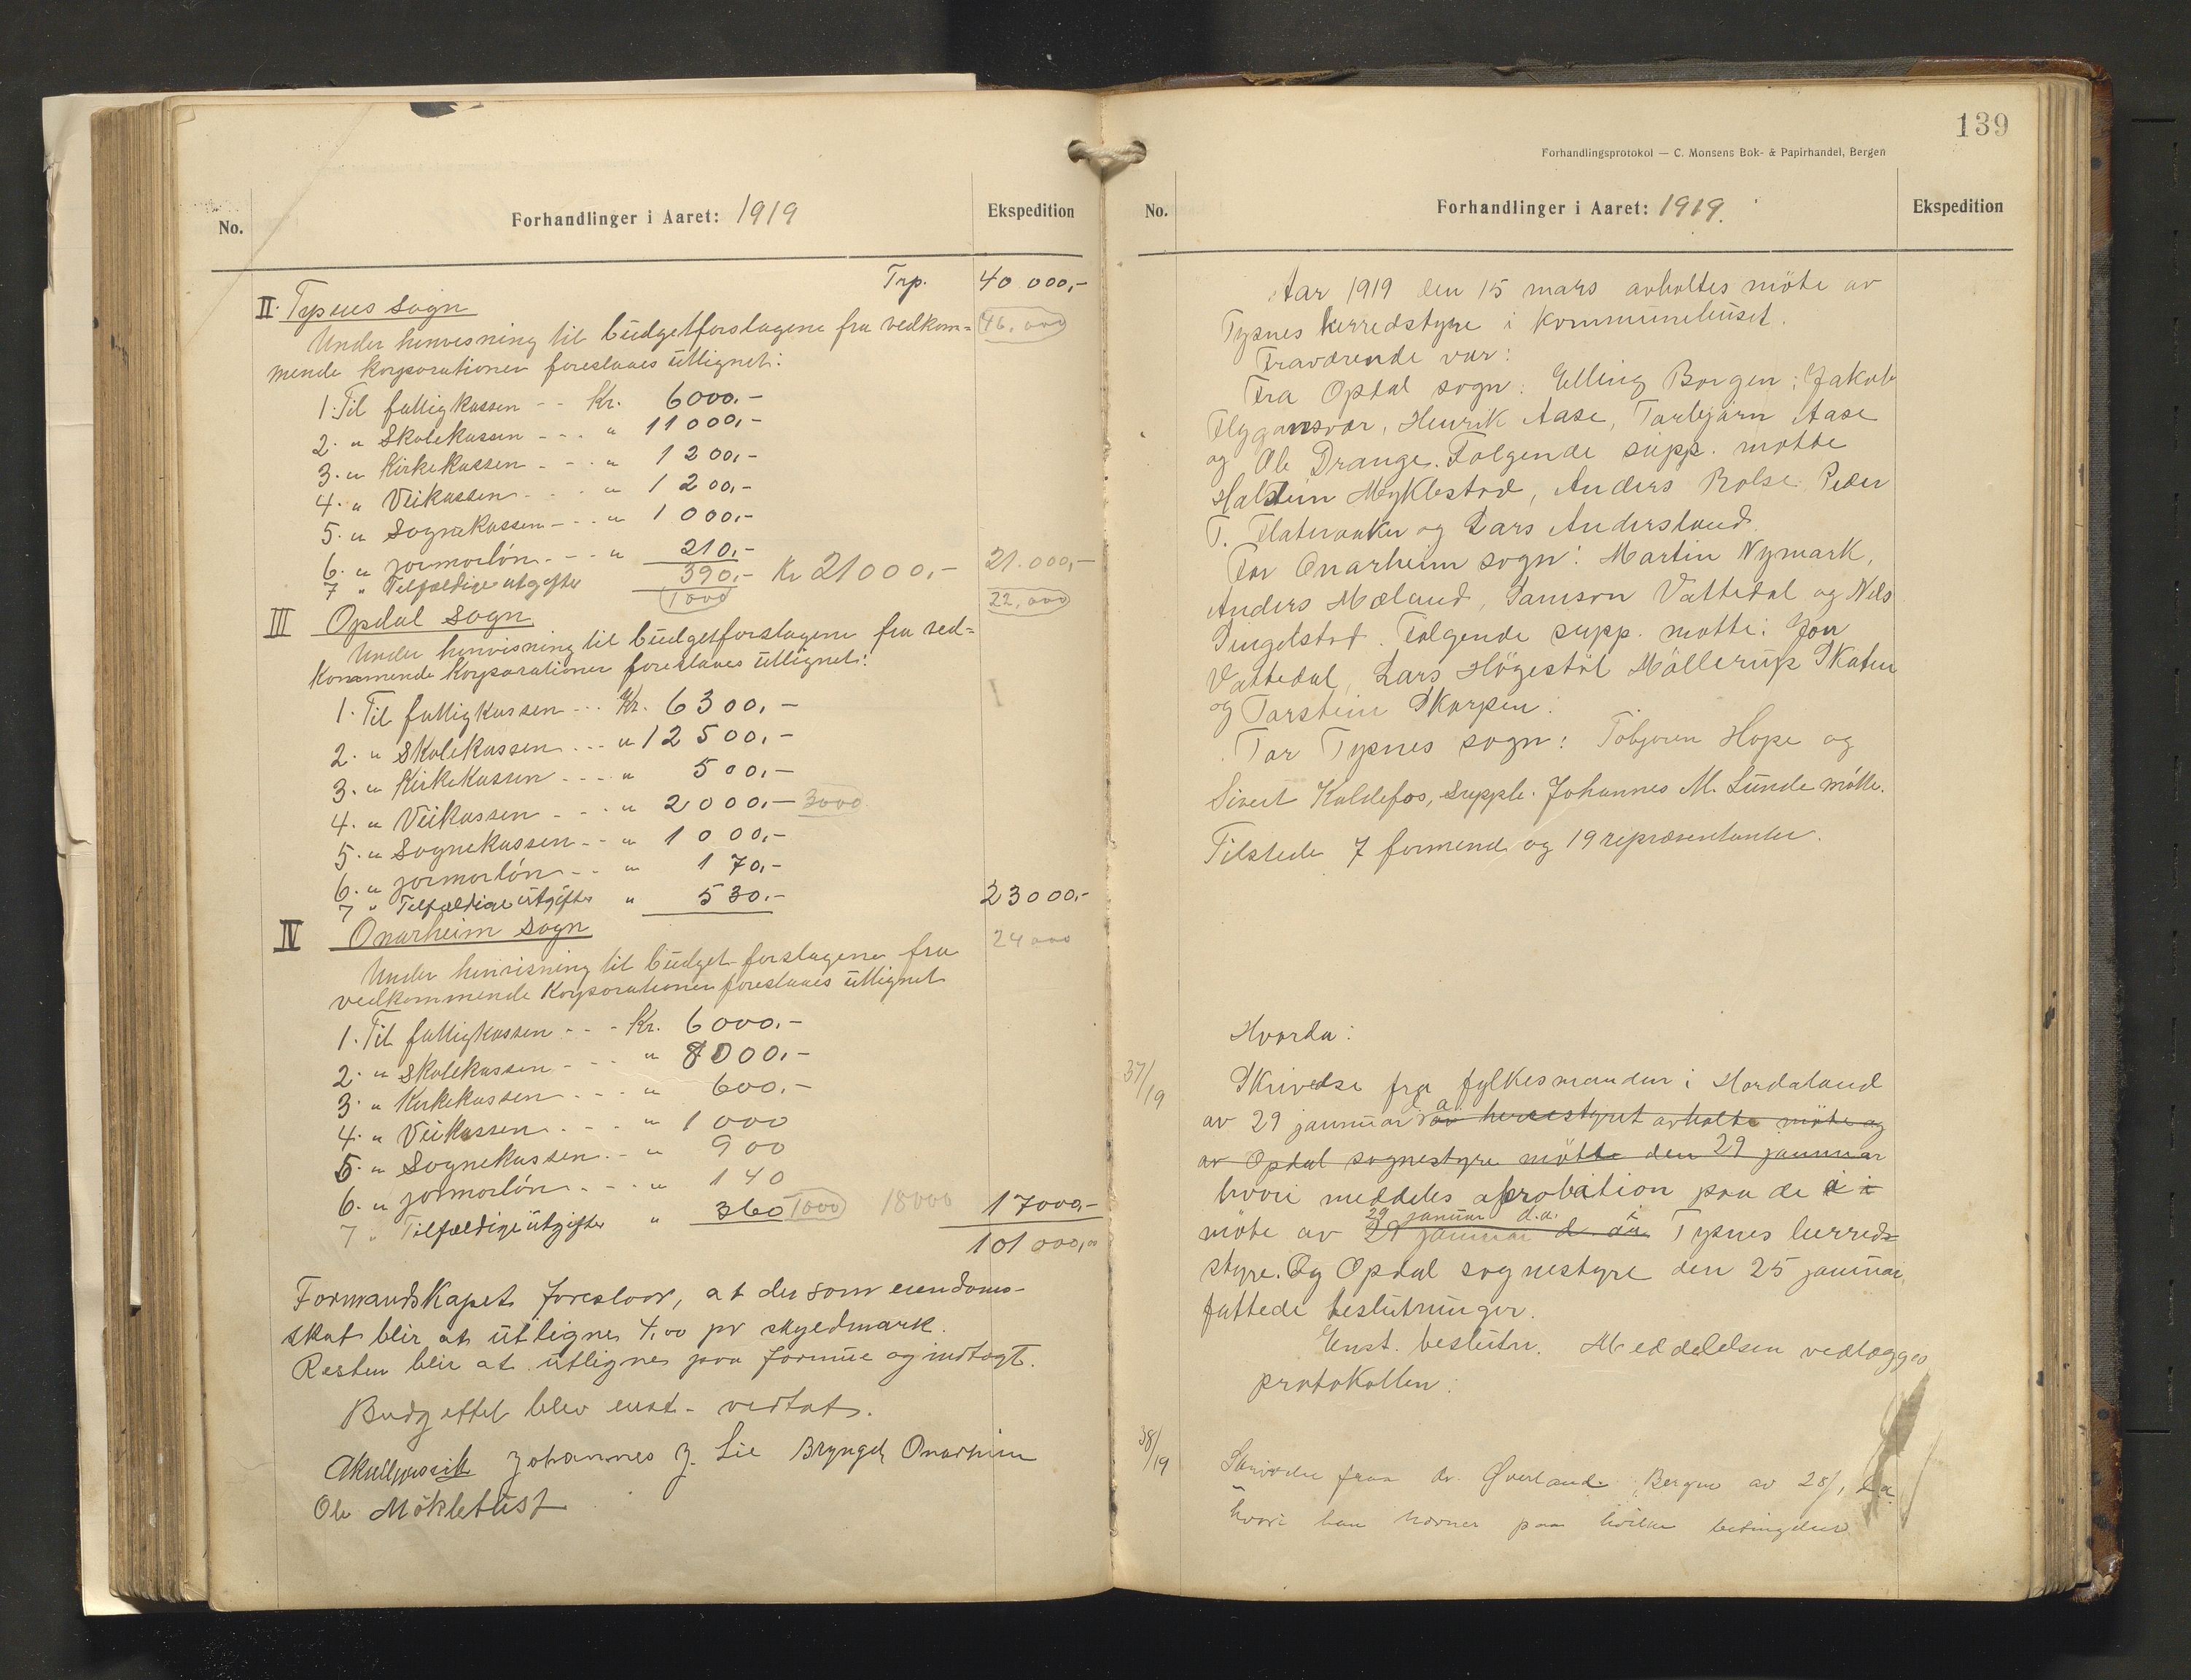 No.
Forhandlinger i Aaret: 1919
Ekspedition
Trp. 40 000,-
II. Tysnes sogn
Under henvisning til budgetforslagene fra vedkom- 46,000
mende korporationer foreslaaes utlignet:
1. Til fattigkassen -- Kr. 6000.-
2. " Skolekassen - - . " 11000,-
3. " Kirkekassen - - . " 1200,-
4. " Veikassen - - . " 1200,-
5. " Sognekassen - - . " 1000,-
6. " jormorlön - - - " 210,-
7 " Tilfældige utgifter 390,- Kr 21000,- 21.000,-
1000 22,000
III Opdal Sogn
Under henvisning til budgetforslagene fra ved=
kommende korporationer foreslaaes utlignet:
1. Til fattigkassen - - . Kr. 6300,-
2. " Skolekassen - - . " 12500,-
3. " Kirkekassen - - - . " 500,-
4. " Veikassen - - . " 2000,- 3000
5. " Sognekassen - - " 1000,-
6. " jormorlön - - " 170,-
7 " Tilfældige utgifter " 530.- 23000,-
IV Onarheim Sogn 24000
Under henvisning til budget-forslagene fra
vedkommende korporationer foreslaaes utlignet
1. Til fattigkassen - - - Kr. 6000,-
2. " Skolekassen - - - " 8000,-
3. " Kirkekassen - - . " 600,-
4. " Veikassen . - . " 1000
5. " Sognekassen . - " 900
6. " jormorlön . - . " 140
7 " Tilfældige utgifter " 360 1000 18000 17000,-
101 000,00
Formandskapet foreslaar, at der som eiendoms-
skat blir at utligne 4,00 pr skyldmark.
Resten blir at utlignes paa formue og indtægt.
Budgettet blev enst. vedtat.
Johannes J. Lie Bryngel Onarheim
Ole Mökletüst
139
Forhandlingsprotokol — C. Monsens Bok- & Papirhandel, Bergen
No.
Forhandlinger i Aaret: 1919.
Ekspedition
Aar 1919 den 15 mars avholtes möte av
Tysnes herredstyre i kommunehuset.
Fraværende var:
Fra Opdal sogn: Elling Borgen; Jakob
Flygansvær, Henrik Aase, Torbjörn Aase
og Ole Drange. Følgende supp. motte
Halstein Myklestad, Anders Rolse Peder
T. Flateraaker og Lars Andersland.
For Onarheim sogn: Martin Nymark,
Anders Mæland, Samson Vattedal og Nils
Singelstad. Følgende supp. motte: Jon
Vattedal, Lars Högestöl Möllerup Skaten
og Torstein Skorpen.
For Tysnes sogn: Tobjoren Hope og
Sivert Kaldefos, Supple. Johannes M. Lunde mötte.
Tilstede 7 formend og 19 repræsentanter.
Hvorda:
37/19 Skrivelse fra fylkesmanden i Hordaland
av 29 januar d a av herredstyret avholte möte og
av Opdal sognestyre mötte den 29 januar
hvori meddeles aprobation paa de i
29 januar d.a.
möte av 29 januar d. a. i Tysnes herreds
styre. Og Opdal sognestyre den 25 januar
fattede beslutninger.
Enst. beslutn. Meddelelsen vedlægges
protokollen.
38/19 Skrivelse fraa dr. Øverland Bergen av 28/1 d.a.
hvori han nævner paa hvilke betingelser